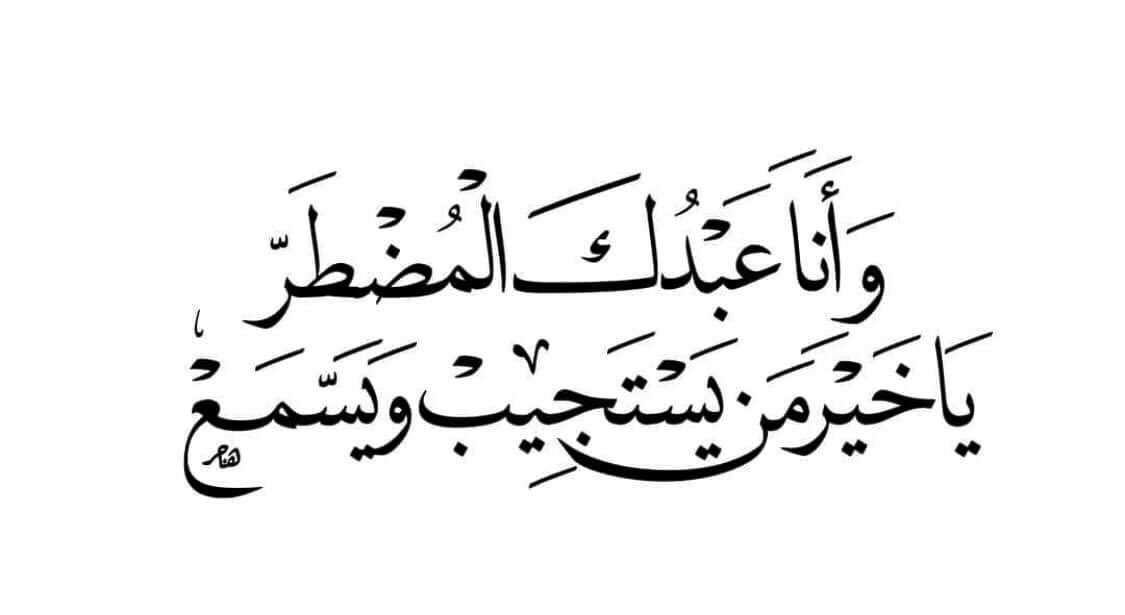 وَأَنَا عَبْدُكَ الْمُضْطَرَّ
يَا خَيْرَ مَن يَسْتَجِيبْ وَيَسَّمَعْ